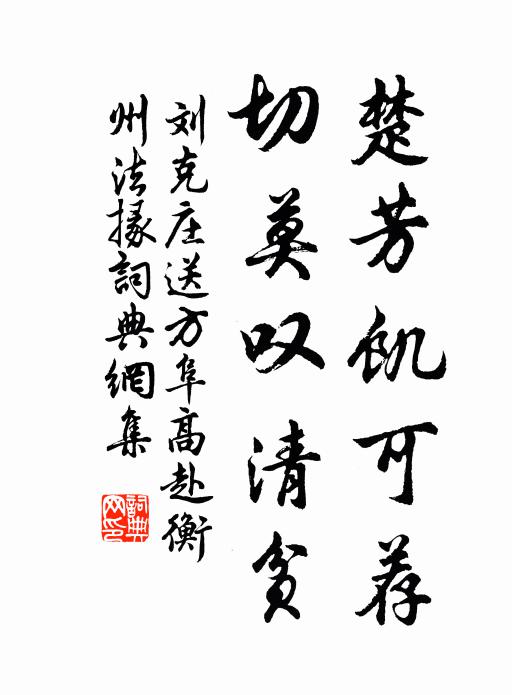 楚芳飢可荐
切莫叹清贫
刘克庄送方阜高赴衡
州法掾詞典網集
詞典
网印